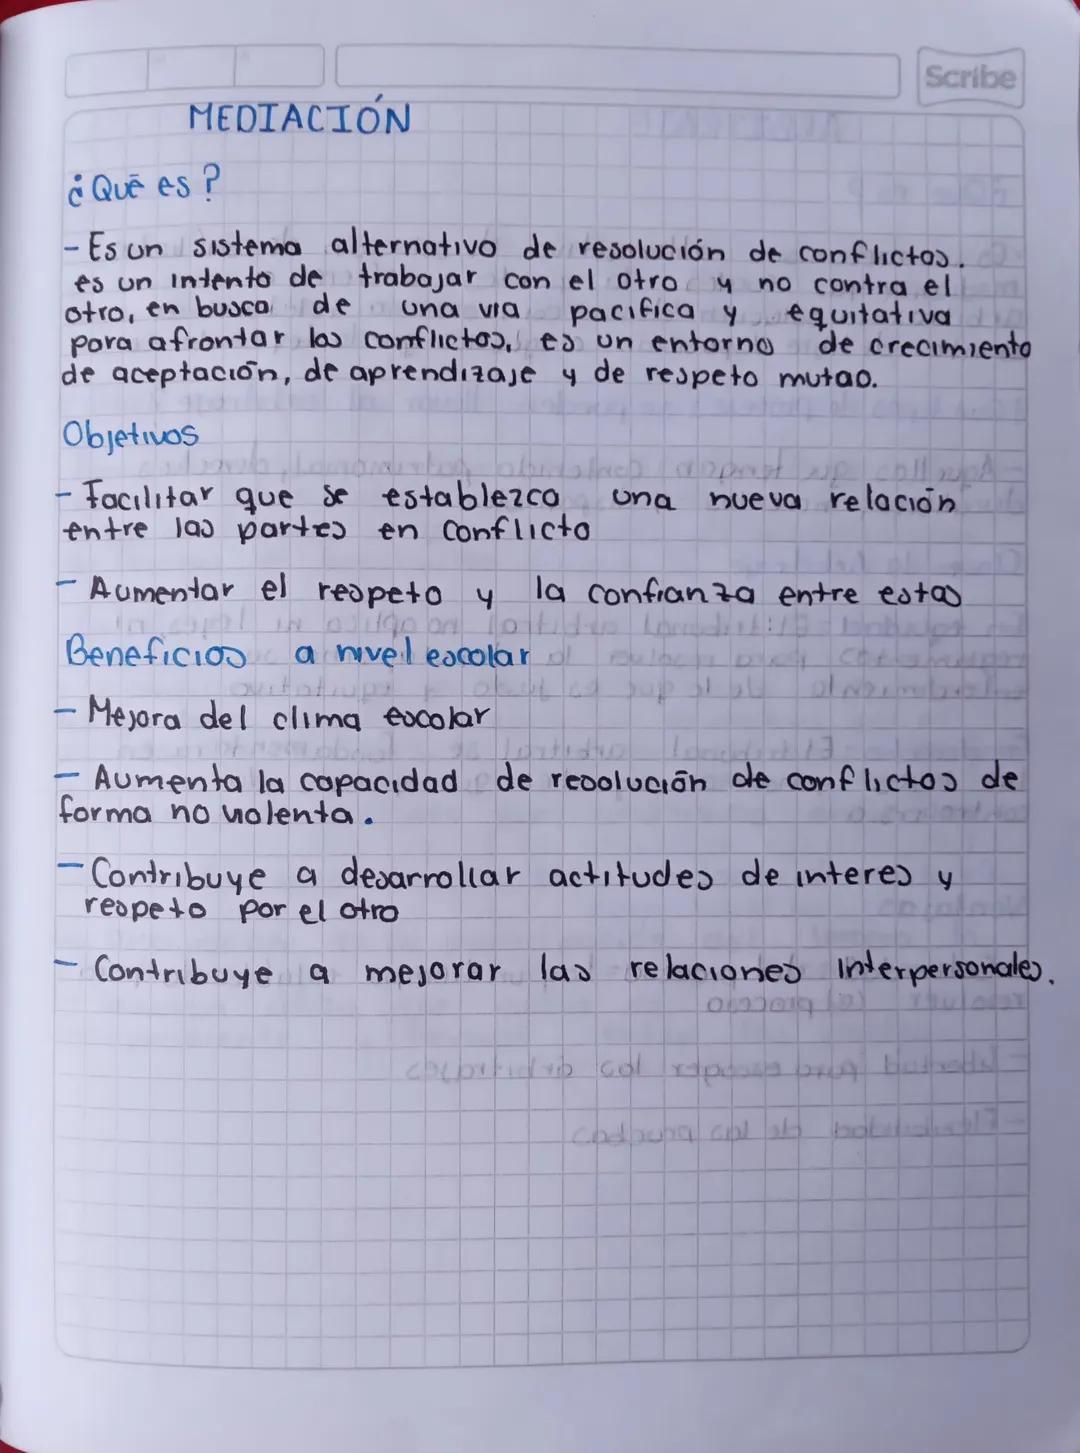 Scribe
MEDIACIÓN
¿Qué es?
- Es un sistema alternativo de resolución de conflictos.
es un intento de trabajar con el otro y no contra el
otro, en busca de una via pacifica y equitativa
para afrontar los conflictos, es un entorno de crecimiento
de aceptación, de aprendizaje y de respeto mutao.
Objetivos
- Facilitar que se establezca una nueva relación
entre las partes en conflicto
- Aumentar el respeto y la confianza entre estas
Beneficios a nivel escolar
- Mejora del clima escolar
- Aumenta la capacidad de resolución de conflictos de
forma no violenta.
- Contribuye a desarrollar actitudes de interes y
respeto por el otro
- Contribuye a mejorar las relaciones interpersonales.